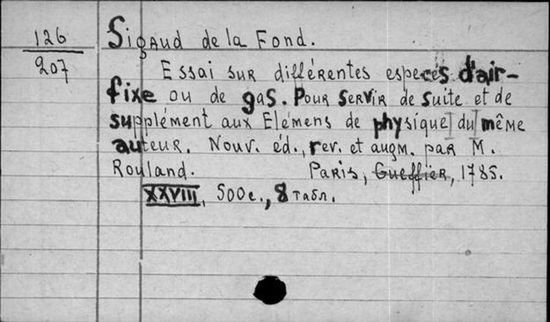 126
207
Sigaud de la Fond.
Essai sur différentes especes d'air-
fixe ou de gas. Pour servir de suite et de
supplément aux Elémens de physique du même
auteur. Nouv. éd., rev. et augm. par M.
Rouland. Paris, Gueffier, 1785.
XXVIII, 500c., 8 табл.